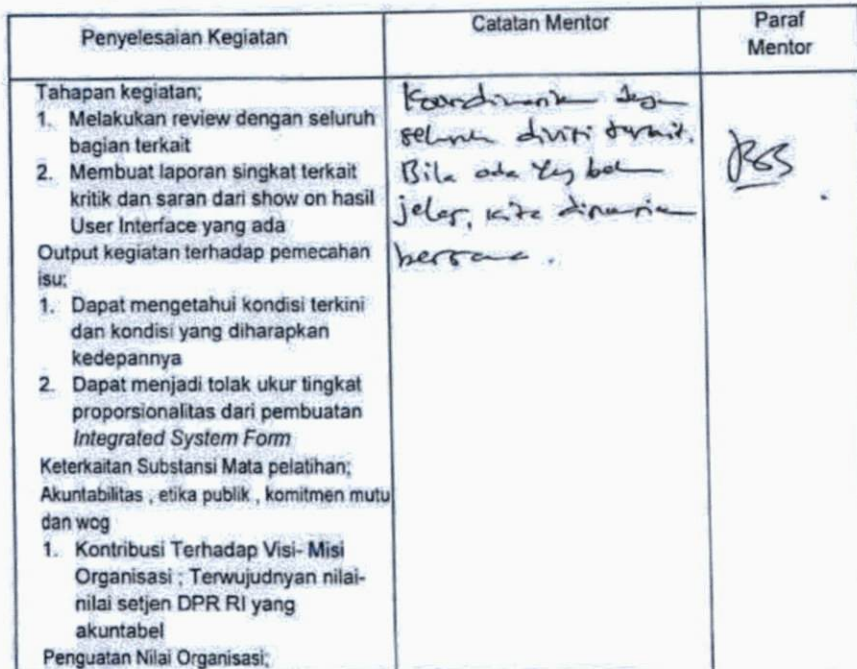 Penyelesaian Kegiatan
Catatan Mentor
Paraf
Mentor
Tahapan kegiatan;
1. Melakukan review dengan seluruh
bagian terkait
2. Membuat laporan singkat terkait
kritik dan saran dari show on hasil
User Interface yang ada
Output kegiatan terhadap pemecahan
isu;
1. Dapat mengetahui kondisi terkini
dan kondisi yang diharapkan
kedepannya
2. Dapat menjadi tolak ukur tingkat
proporsionalitas dari pembuatan
Integrated System Form
Keterkaitan Substansi Mata pelatihan;
Akuntabilitas , etika publik , komitmen mutu
dan wog
1. Kontribusi Terhadap Visi- Misi
Organisasi ; Terwujudnyan nilai-
nilai setjen DPR RI yang
akuntabel
Penguatan Nilai Organisasi;
Koordinasikan dgn
seluruh divisi terkait.
Bila ada yg belum
jelas, kita
bersama.